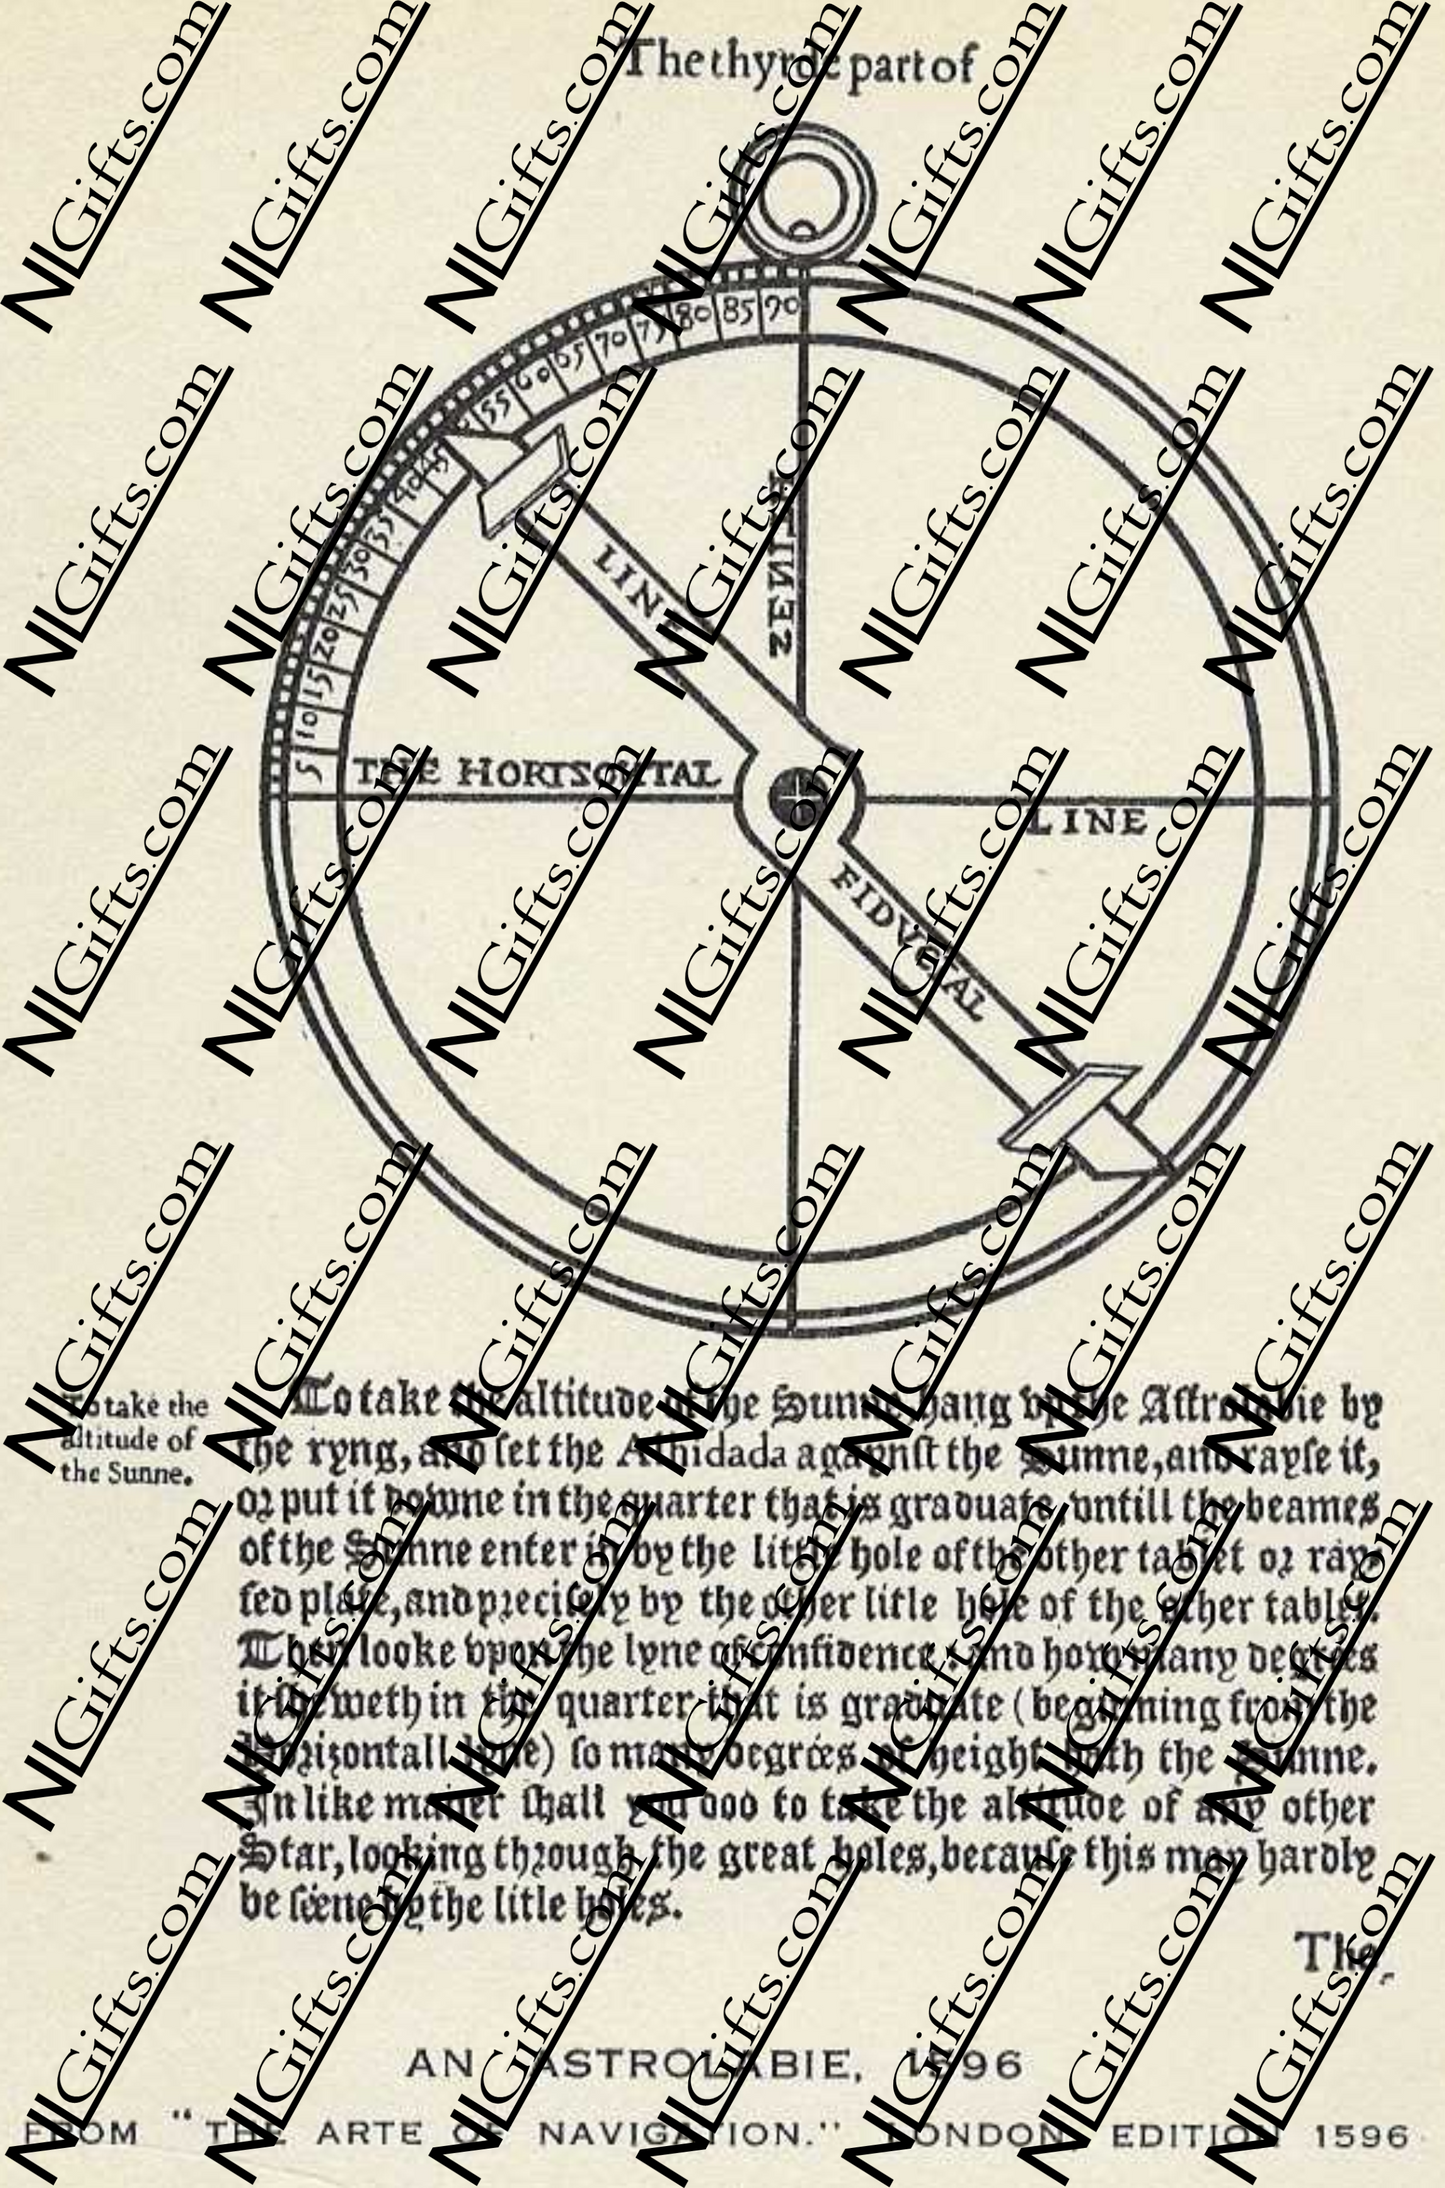 The thyrde part of
5 10 15 20 25 30 35 40 45 55 60 65 70 75 80 85 90
ZENITH
LINE
THE HORISONTAL
LINE
FIDUCIAL
To take the
altitude of
the Sunne.
To take the altitude of the Sunne, hang vp the Astrolabie by
the ryng, and set the Alhidada agaynst the Sunne, and rayse it,
or put it downe in the quarter that is graduate, vntill the beames
of the Sunne enter in by the little hole of the other tablet or ray-
sed plate, and precisely by the other litle hole of the other tablet.
Then looke vpon the lyne of confidence, and how many degrees
it sheweth in the quarter that is graduate (beginning from the
Horizontall lyne) so many degrees of height hath the Sunne.
In like maner shall you doo to take the altitude of any other
Star, looking through the great holes, because this may hardly
be seene by the litle holes.
The
AN ASTROLABIE, 1596
FROM "THE ARTE OF NAVIGATION." LONDON, EDITION 1596
NIGifts.com